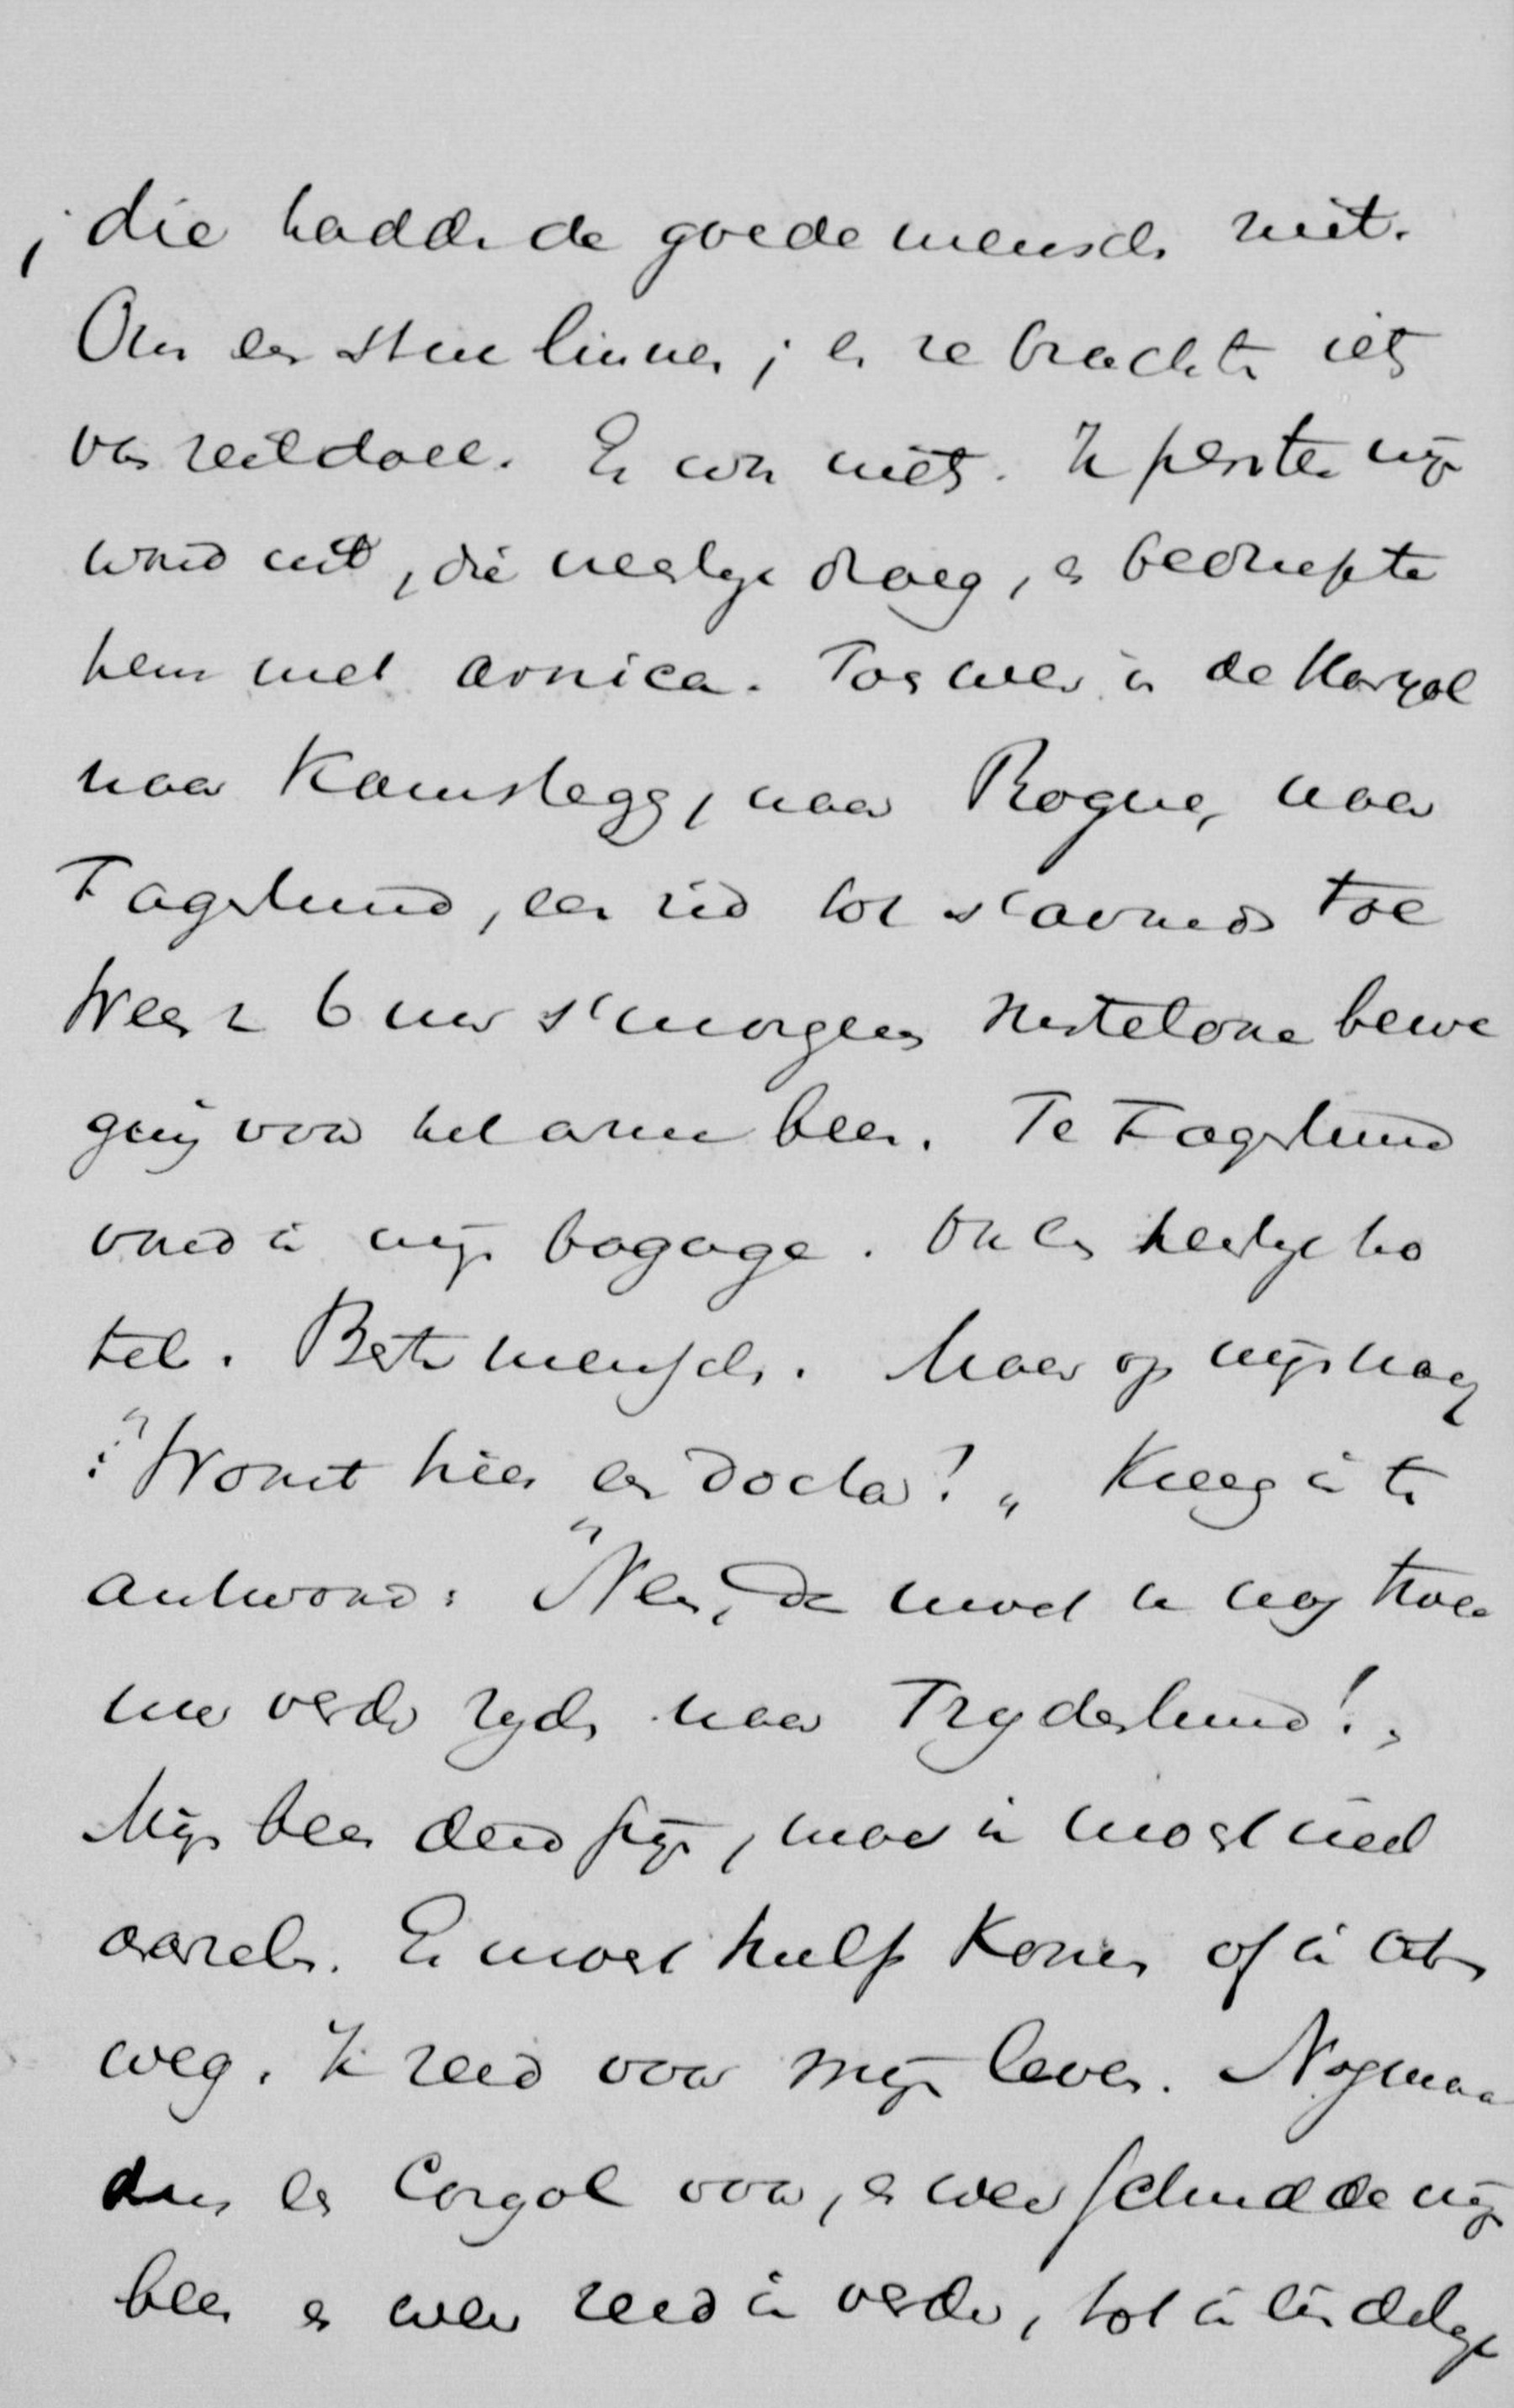 ; die hadden de goede menschen niet.
Om een stuk linnen; en ze brachten iets
van zeildoek. Er was niets. Ik perste mijn
wond uit, die neerlijk droeg, en bedrupte
hem met arnica. Toen weer in de Karjol
naar Kamslegg, naar Rogne, naar
Fagerlund, een rid tot s'avonds toe
Weer 6 uur s'morgens rustelooze bewe
ging voor het arme been. Te Fagerlund
vond ik mijn bagage. Ook een heerlijk ho
tel. Beste menschen. Maar op mijn vraag
: "Woont hier een doctor?" Kreeg ik ten
antwoord: "Neen, dan moet u nog twee
uur verder rijden naar Frydenlund!"
Mijn been deed pijn, maar ik moest niet
aarzelen. Er moest hulp komen of ik was
weg. Ik reed voor mijn leven. Nogmaa
een Cargol voor, en weer schudde mijn
been en weer reed ik verder, tot ik eindelijk